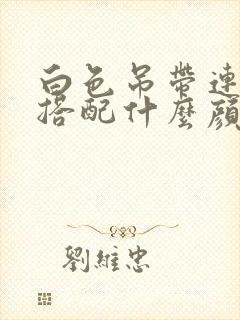 白色吊帶連
搭配什麼顏
劉維忠